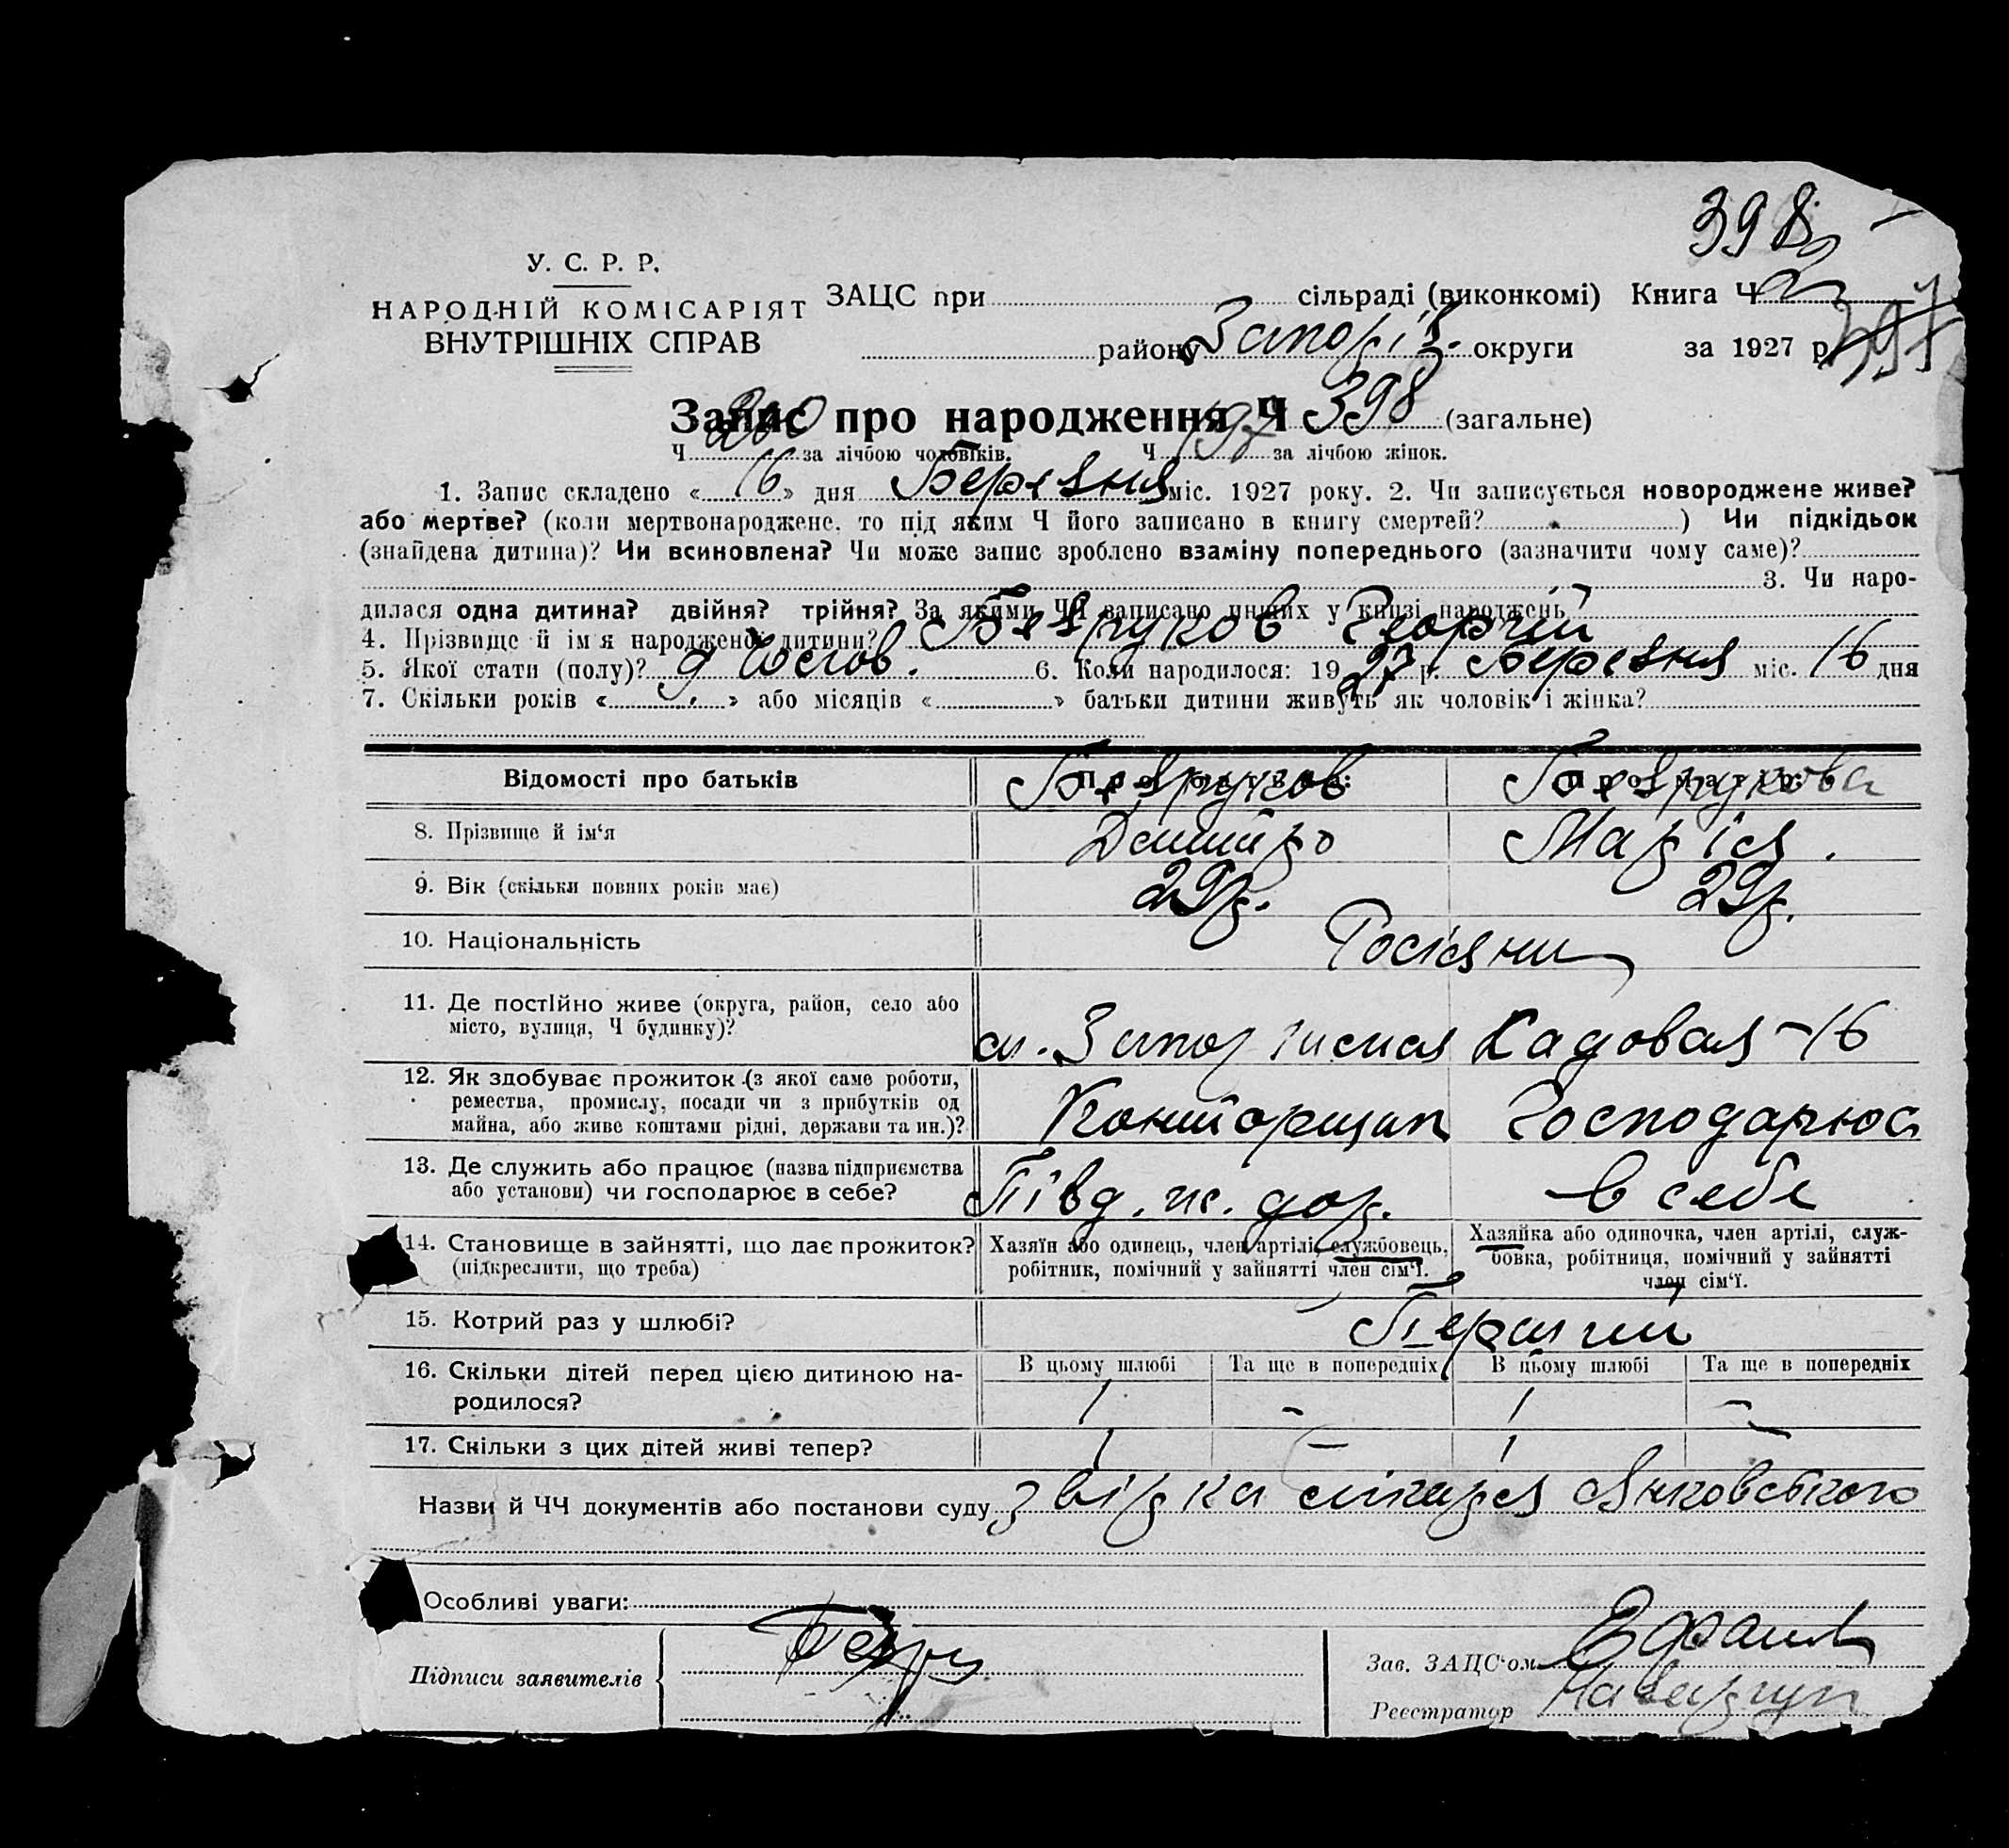 398
У. С. Р. Р.
НАРОДНІЙ КОМІСАРІЯТ
ВНУТРІШНІХ СПРАВ
ЗАЦС при сільраді (виконкомі) Книга Ч 2
району Запоріз. округи за 1927 р. 397
Запис про народження Ч 398 (загальне)
Ч 200 за лічбою чоловіків. Ч 197 за лічбою жінок.
1. Запис складено « 16 » дня Березня міс. 1927 року. 2. Чи записується новороджене живе?
або мертве? (коли мертвонароджене, то під яким Ч його записано в книгу смертей? ) Чи підкідьок
(знайдена дитина)? Чи всиновлена? Чи може запис зроблено взаміну попереднього (зазначити чому саме)?
3. Чи наро-
дилася одна дитина? двійня? трійня? За якими ЧЧ записано инших у книзі народжень
4. Прізвище й ім'я народженої дитини? Безруков Георгій
5. Якої стати (полу)? Чолов. 6. Коли народилося: 1927 р. Березня міс. 16 дня
7. Скільки років « » або місяців « » батьки дитини живуть як чоловік і жінка?
Відомості про батьків Про батька: Про матір:
Безруков Безрукова
8. Прізвище й ім'я Дмитро Марія.
9. Вік (скільки повних років має) 29 р. 29 р.
10. Національність Росіяни
11. Де постійно живе (округа, район, село або
місто, вулиця, Ч будинку)? м. Запоріжжя Садовая - 16
12. Як здобуває прожиток (з якої саме роботи,
ремества, промислу, посади чи з прибутків од
майна, або живе коштами рідні, держави та ин.)? Конторщик Господарює
13. Де служить або працює (назва підприємства
або установи) чи господарює в себе? Півд. ж. дор. в себе
14. Становище в зайнятті, що дає прожиток?
(підкреслити, що треба)
Хазяїн або одинець, член артілі, службовець,
робітник, помічний у зайнятті член сім'ї.
Хазяйка або одиночка, член артілі, служ-
бовка, робітниця, помічний у зайнятті
член сім'ї.
15. Котрий раз у шлюбі? Перший
16. Скільки дітей перед цією дитиною на-
родилося?
В цьому шлюбі Та ще в попередніх В цьому шлюбі Та ще в попередніх
1 - 1 -
17. Скільки з цих дітей живі тепер? 1 - 1
Назви й ЧЧ документів або постанови суду звірка лікаря Янковського
Особливі уваги:
Підписи заявителів
Зав. ЗАЦС'ом
Реєстратор